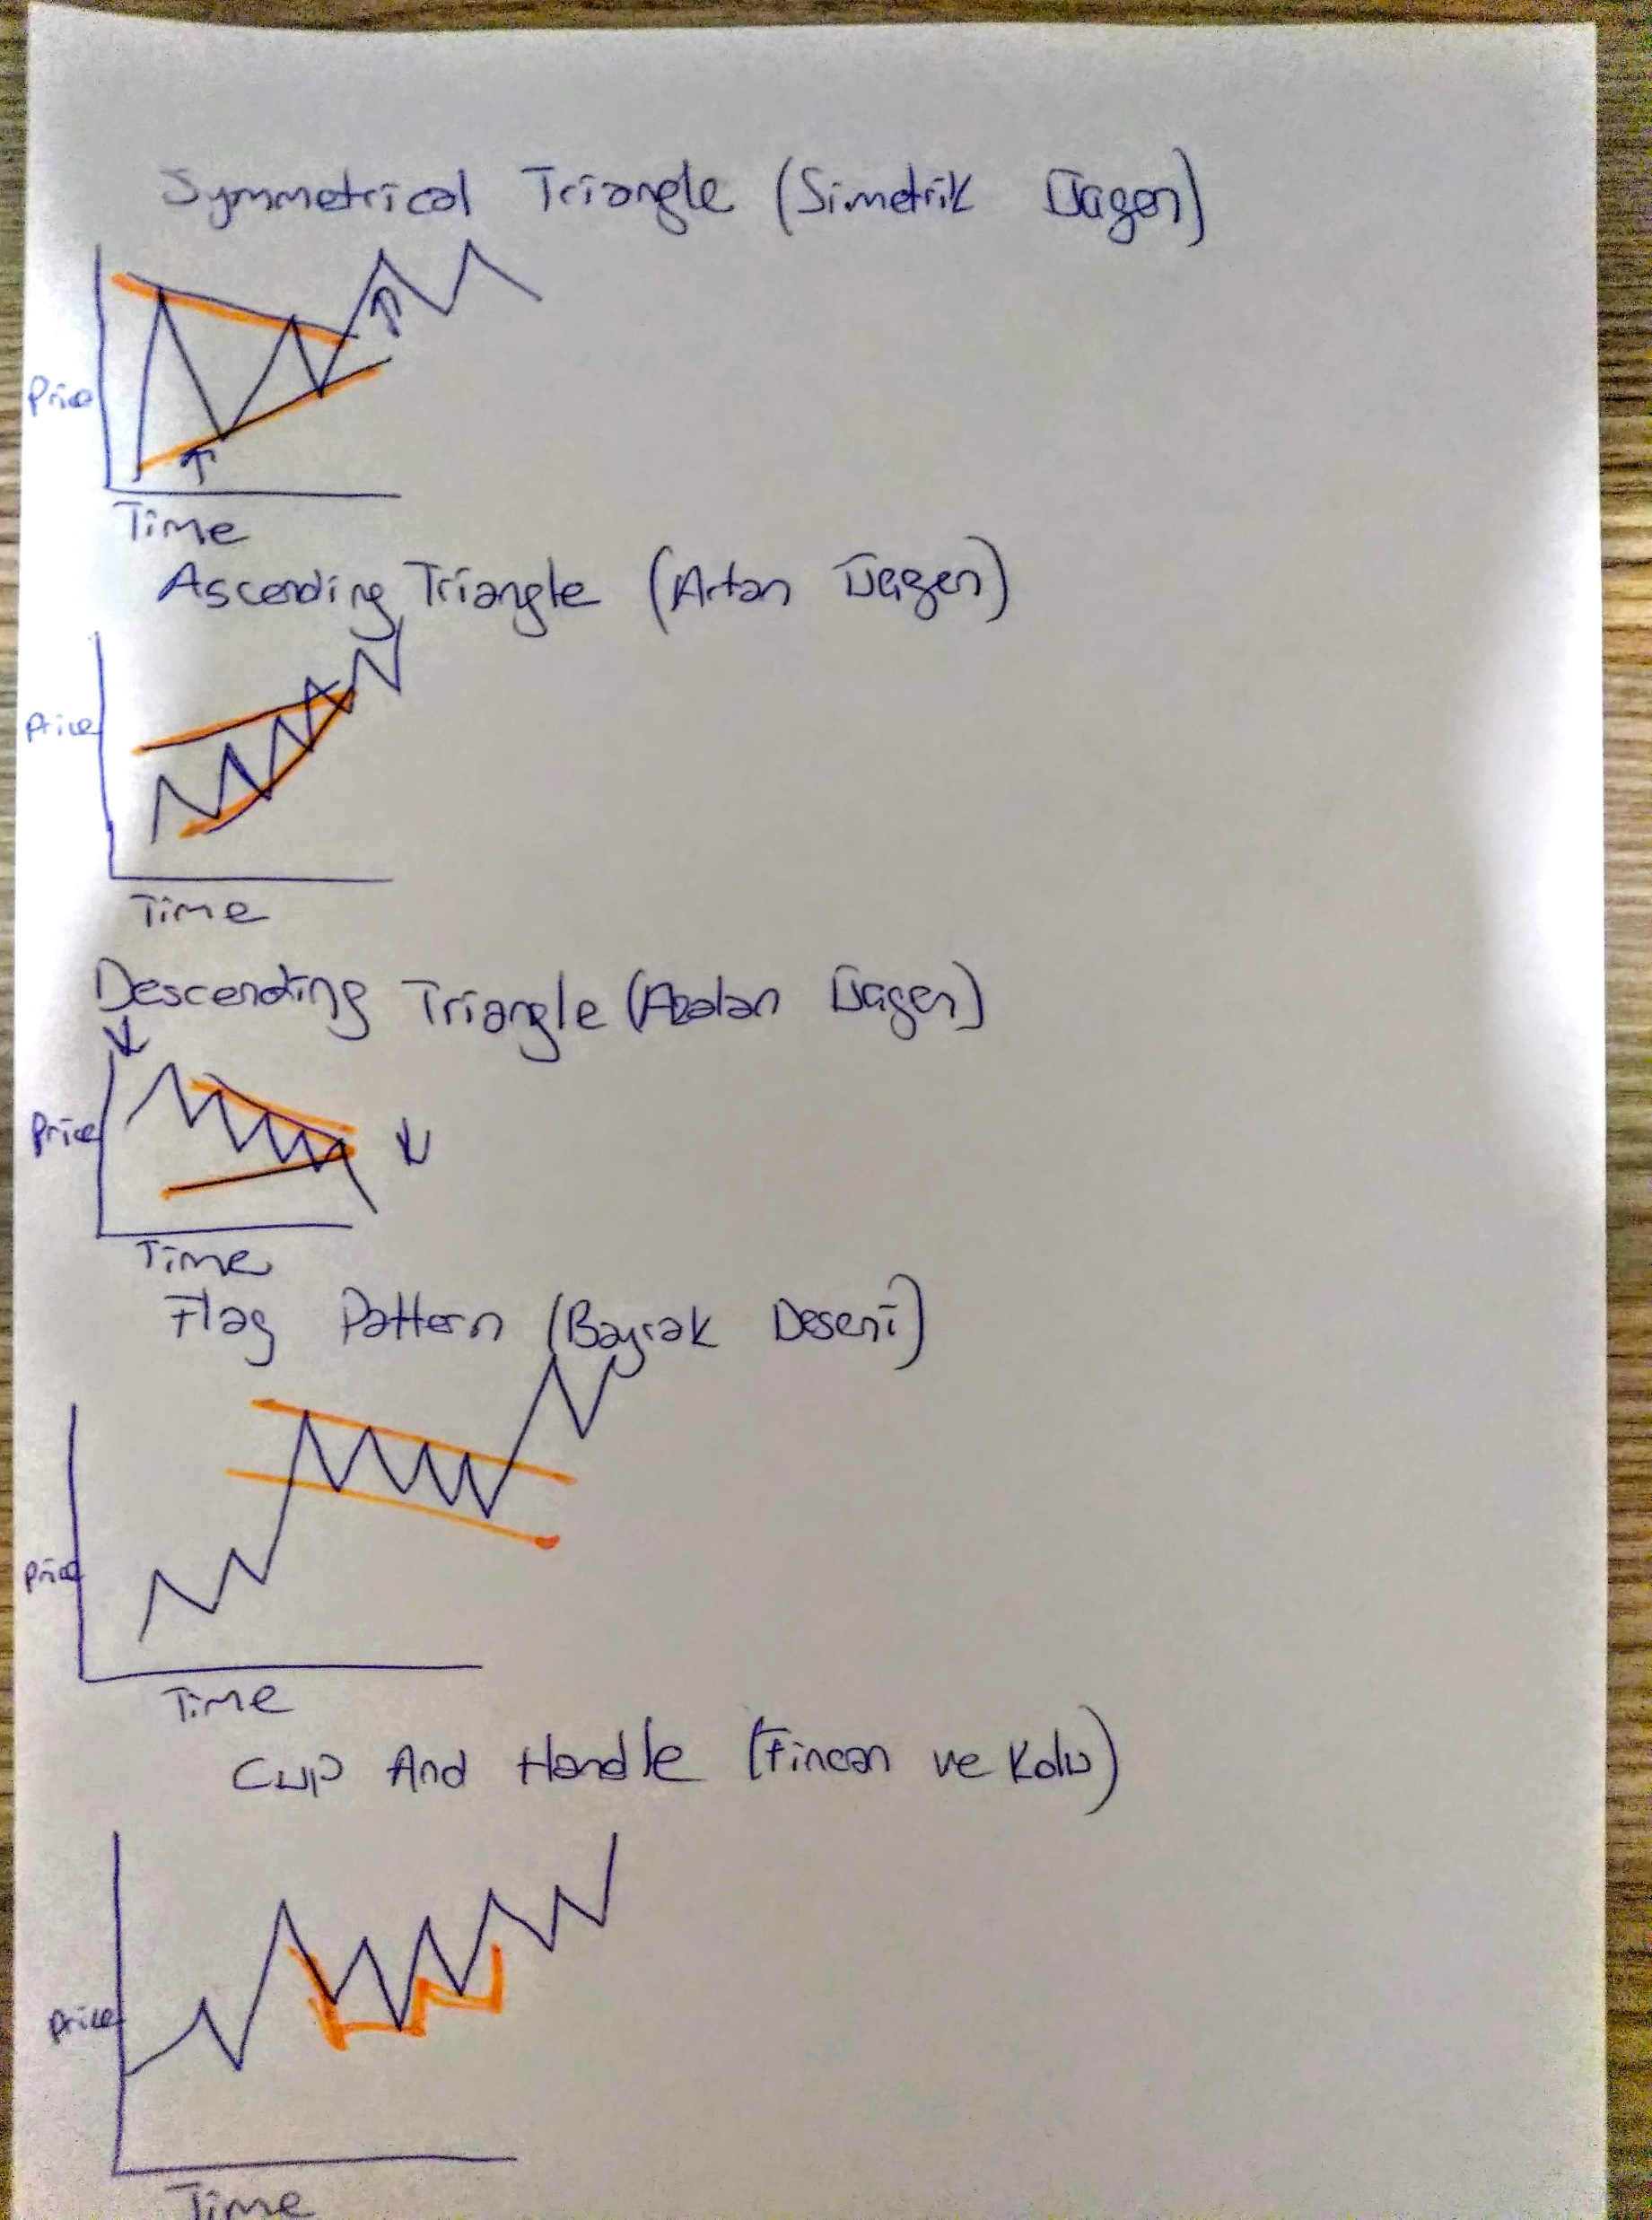 Symmetrical Triangle (Simetrik Üçgen)
Price
Time
Ascending Triangle (Artan Üçgen)
Price
Time
Descending Triangle (Azalan Üçgen)
Price
Time
Flag Pattern (Bayrak Deseni)
Price
Time
Cup And Handle (Fincan ve Kolu)
Price
Time